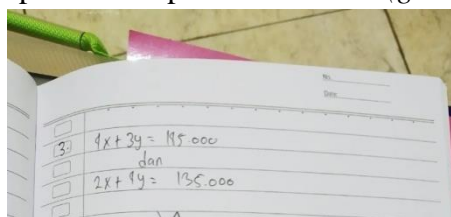 No.
Date:
3. 4x + 3y = 195.000
dan
2x + 4y = 135.000